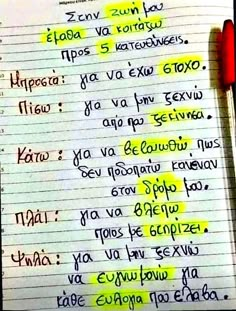 Στην ζωή μου
έμαθα να κοιτάζω
προς 5 κατευθύνσεις.
Μπροστά: για να έχω στόχο.
Πίσω: για να μην ξεχνώ
από που ξεκίνησα.
Κάτω: για να βεβαιωθώ πως
δεν ποδοπατώ κανέναν
στον δρόμο μου.
Πλάι: για να βλέπω
ποιος με στηρίζει.
Ψηλά: για να μην ξεχνώ
να ευγνωμονώ για
κάθε ευλογία που έλαβα.